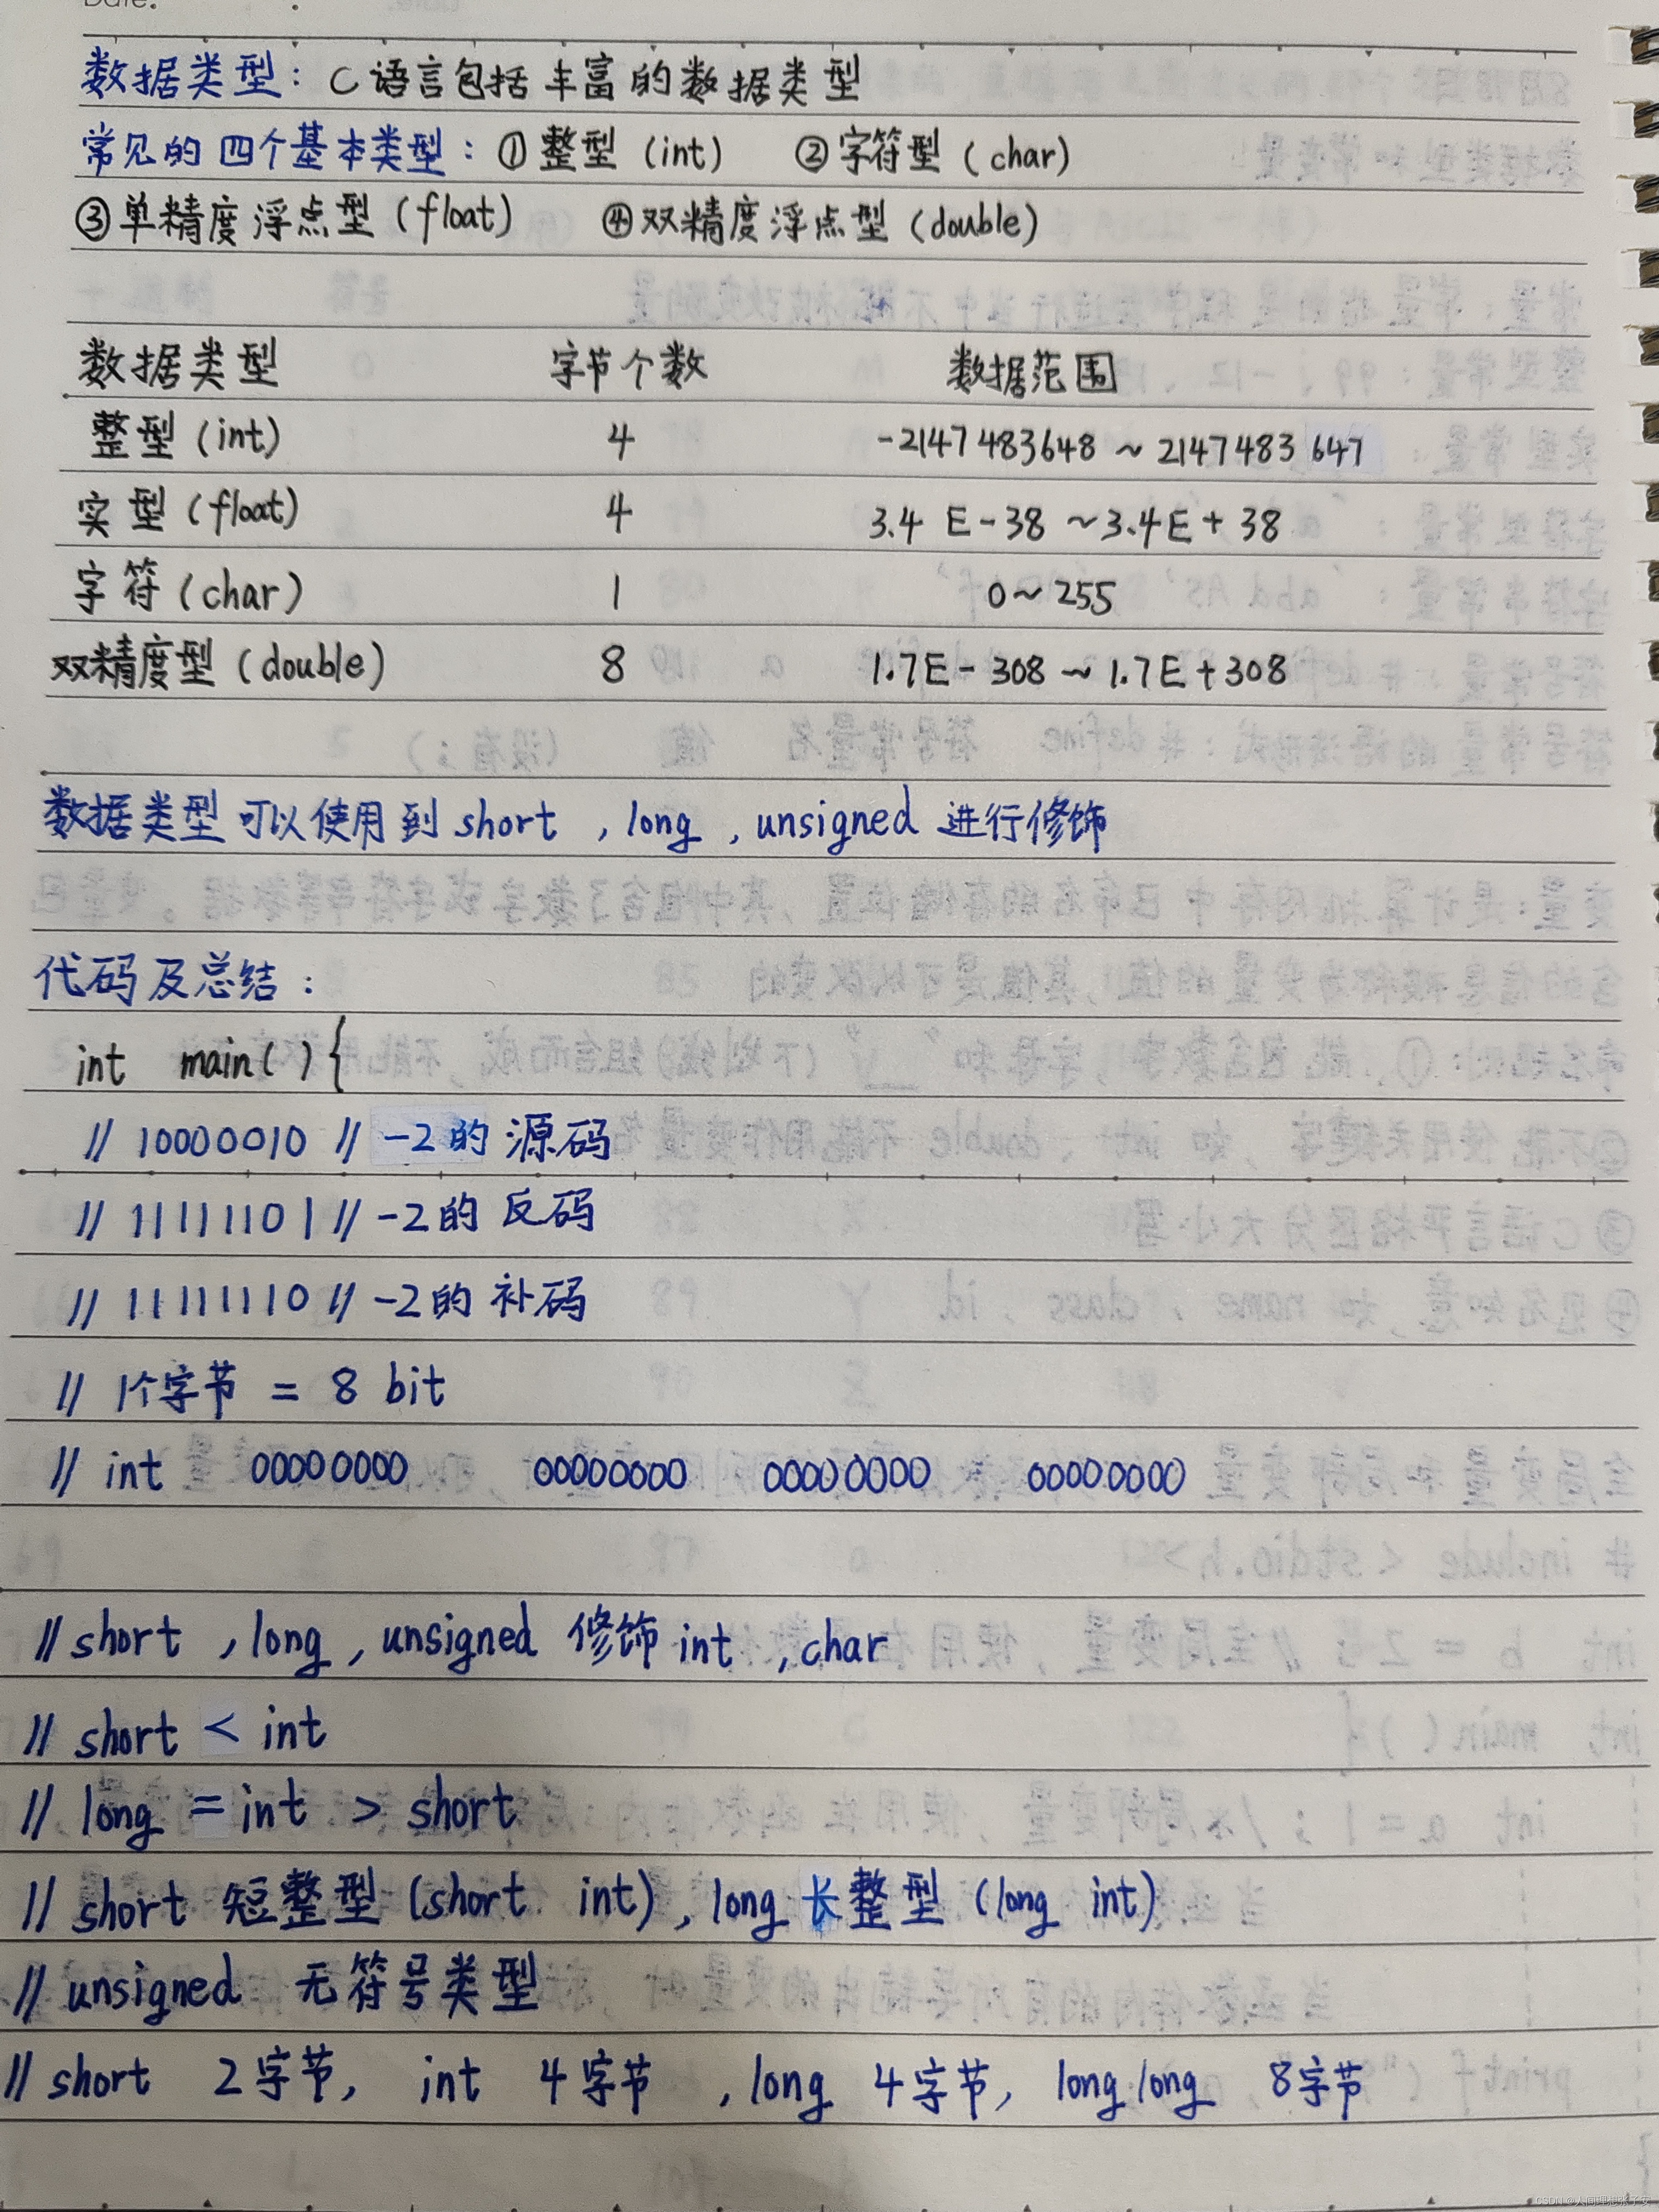 Date.
数据类型：C语言包括丰富的数据类型
常见的四个基本类型：①整型（int） ②字符型（char）
③单精度浮点型（float） ④双精度浮点型（double）
数据类型 字节个数 数据范围
整型（int） 4 -2147483648 ~ 2147483647
实型（float） 4 3.4 E-38 ~3.4E+38
字符（char） 1 0~255
双精度型（double） 8 1.7E-308 ~ 1.7E+308
数据类型可以使用到 short , long , unsigned 进行修饰
代码及总结：
int main(){
// 10000010 // -2的 源码
// 11111101 // -2的 反码
// 11111110 // -2的 补码
// 1个字节 = 8 bit
// int 00000000 00000000 00000000 00000000
// short , long , unsigned 修饰 int , char
// short < int
// long = int > short
// short 短整型 (short int) , long 长整型 (long int)
// unsigned 无符号类型
// short 2字节, int 4字节 , long 4字节, long long 8字节